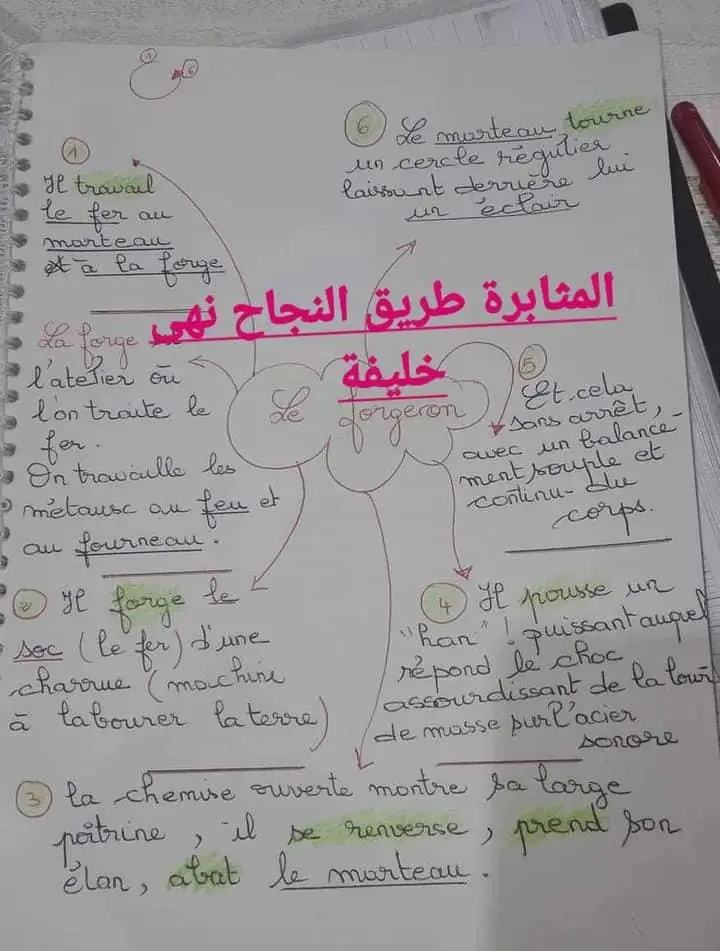 1 6
1
Il travail
le fer au
marteau
et à la forge
La forge
l'atelier où
l'on traite le
fer.
On travaille les
métausc au feu et
au fourneau.
2 Il forge le
soc (le fer) d'une
charrue (machine
à labourer la terre)
3 la chemise ouverte montre sa large
poitrine, il se renverse, prend son
élan, abat le marteau.
4 Il pousse un
"han"! puissant auquel
répond le choc
assourdissant de la lourd
de masse sur l'acier
sonore
5
Et cela
sans arrêt,
avec un balance-
ment souple et
continu- du
corps.
6 Le marteau tourne
un cercle régulier
laissant derrière lui
un éclair
Le forgeron
المثابرة طريق النجاح نهى
خليفة